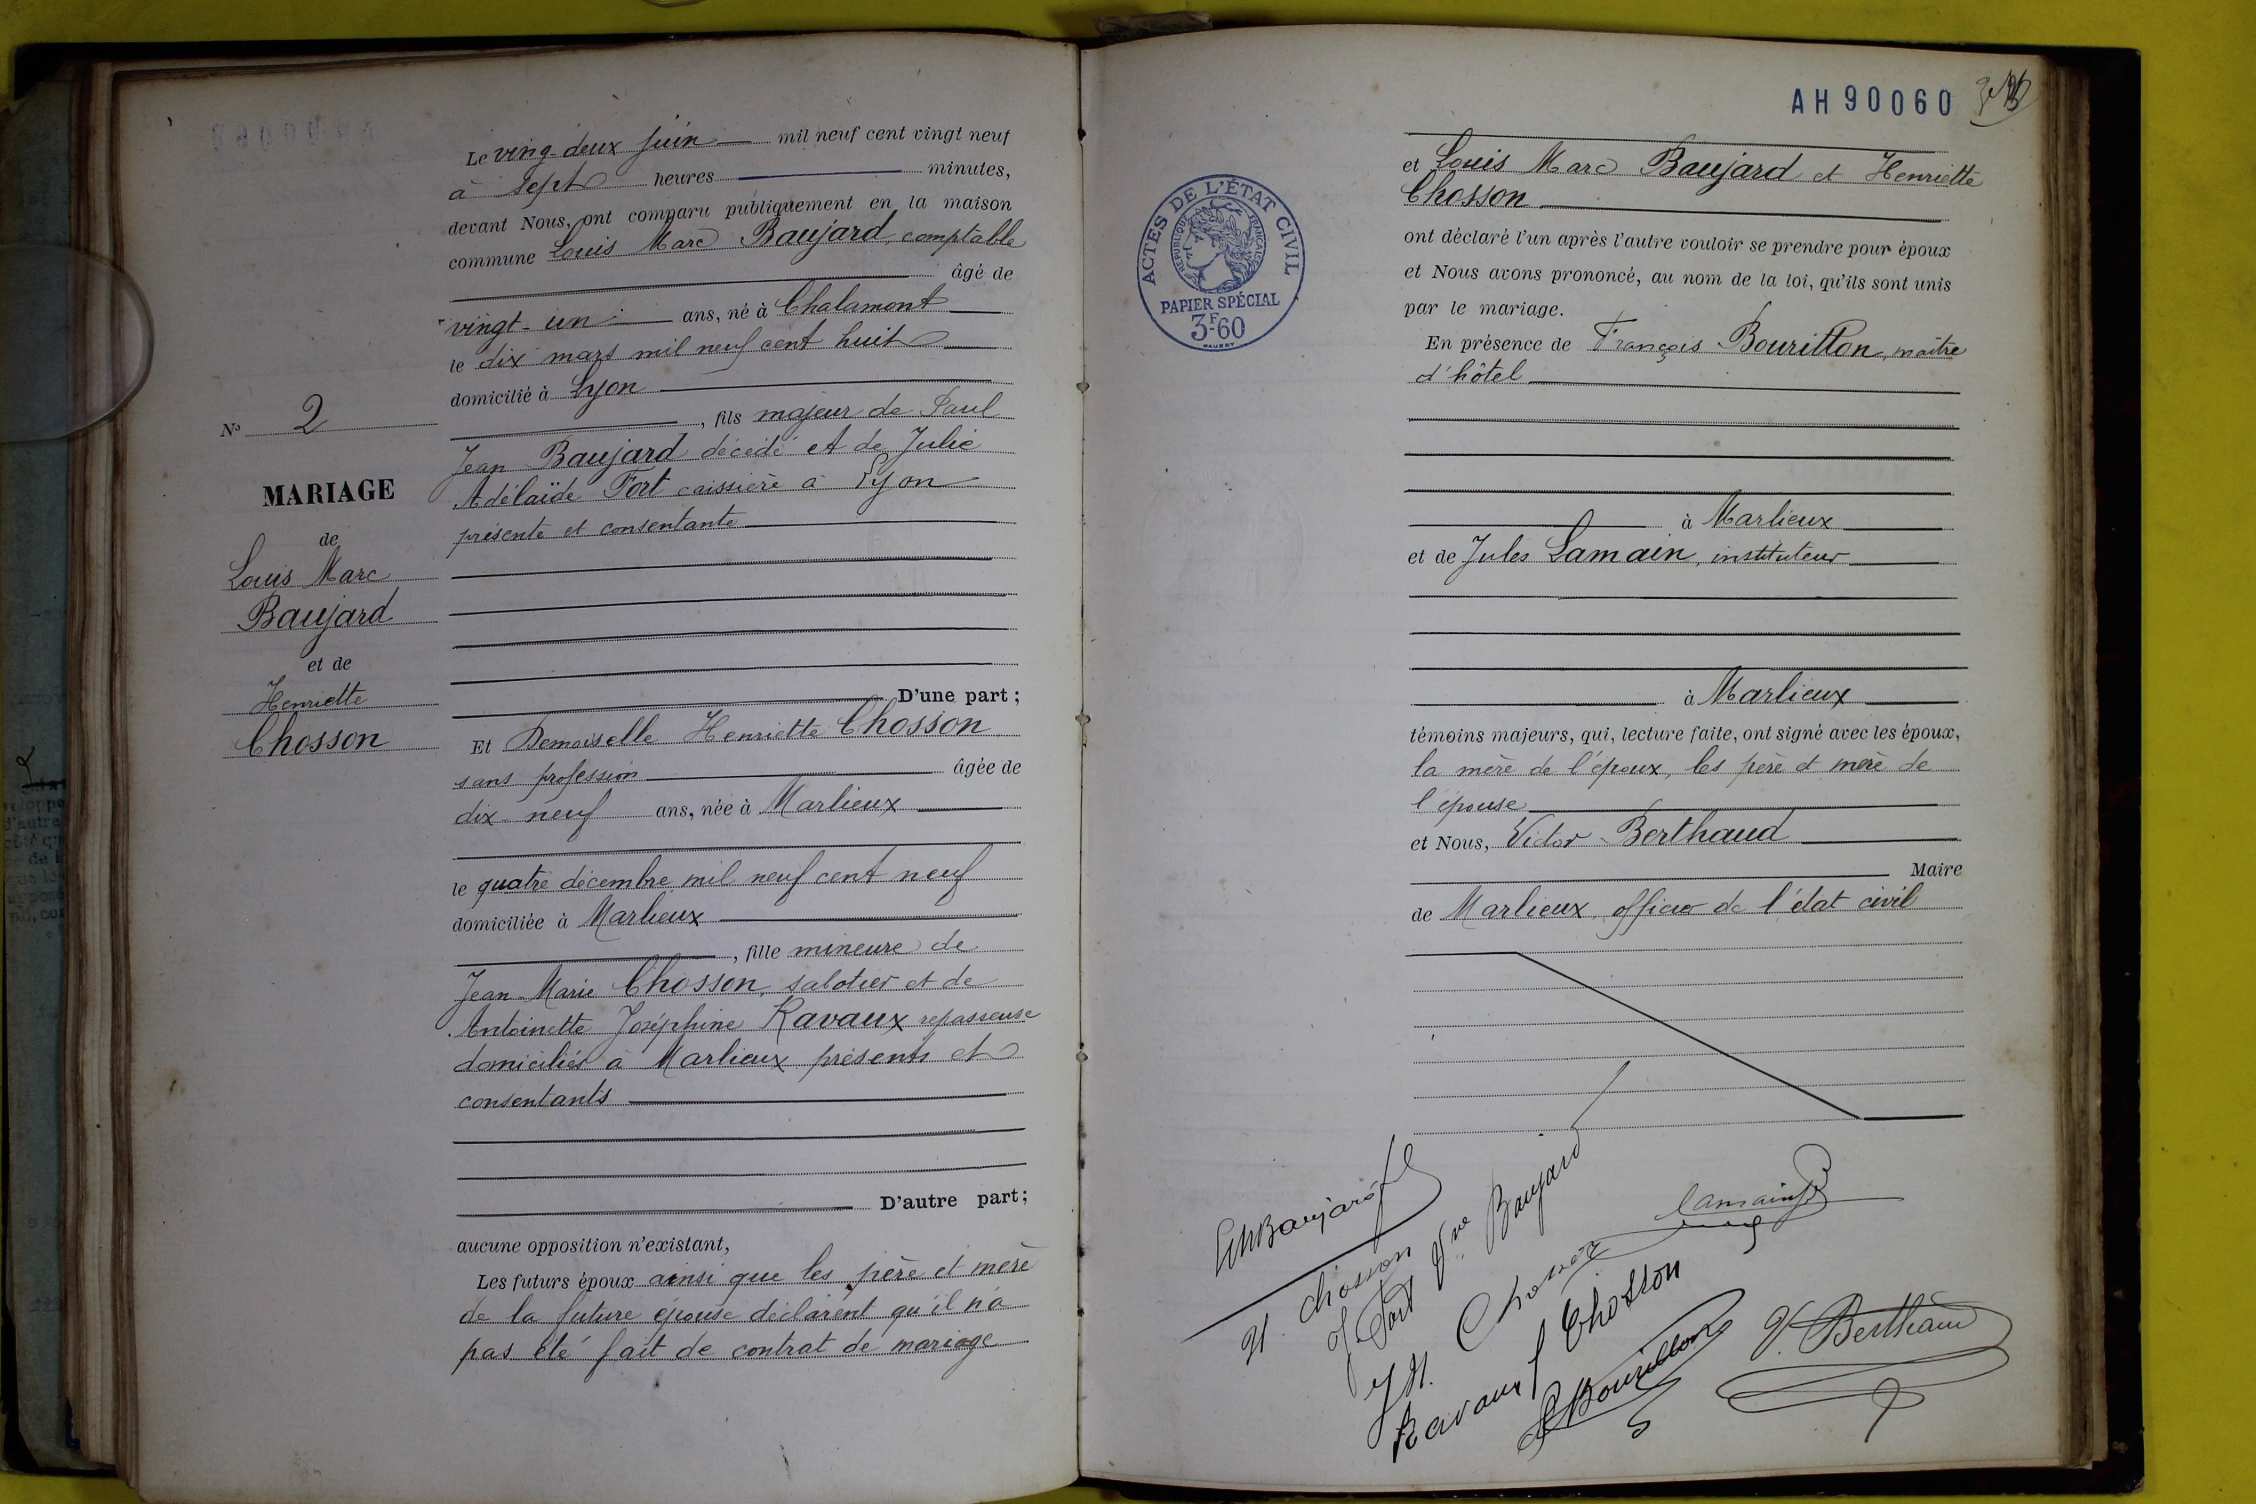 Le ving-deux juin mil neuf cent vingt neuf
à sept heures minutes,
devant Nous, ont comparu publiquement en la maison
commune Louis Marc Baujard, comptable
âgé de
vingt-un ans, né à Chalamont
le dix mars mil neuf cent huit
domicilié à Lyon
, fils majeur de Paul
Jean Baujard décédé et de Julie
Adélaïde Fort caissière à Lyon
présente et consentante
D'une part;
Et Demoiselle Henriette Chosson
sans profession âgée de
dix-neuf ans, née à Marlieux
le quatre décembre mil neuf cent neuf
domiciliée à Marlieux
, fille mineure de
Jean Marie Chosson, sabotier et de
Antoinette Joséphine Ravaux repasseuse
domiciliés à Marlieux présents et
consentants
D'autre part;
aucune opposition n'existant,
Les futurs époux ainsi que les père et mère
de la future épouse déclarent qu'il n'a
pas été fait de contrat de mariage
N° 2
MARIAGE
de
Louis Marc
Baujard
et de
Henriette
Chosson
AH90060
et Louis Marc Baujard et Henriette
Chosson
ont déclaré l'un après l'autre vouloir se prendre pour époux
et Nous avons prononcé, au nom de la loi, qu'ils sont unis
par le mariage.
En présence de François Bourillon, maître
d'hôtel
à Marlieux
et de Jules Lamain, instituteur
à Marlieux
témoins majeurs, qui, lecture faite, ont signé avec les époux,
la mère de l'époux, les père et mère de
l'épouse
et Nous, Victor Berthaud
Maire
de Marlieux, officier de l'état civil
ACTES DE L'ÉTAT CIVIL
RÉPUBLIQUE FRANÇAISE
PAPIER SPÉCIAL
3F.60
LMBaujard
H. Chosson
J. Fort Vve Baujard
J M. Chosson
Lamain
Ravaux f Chosson
Bourillon
V. Berthaud